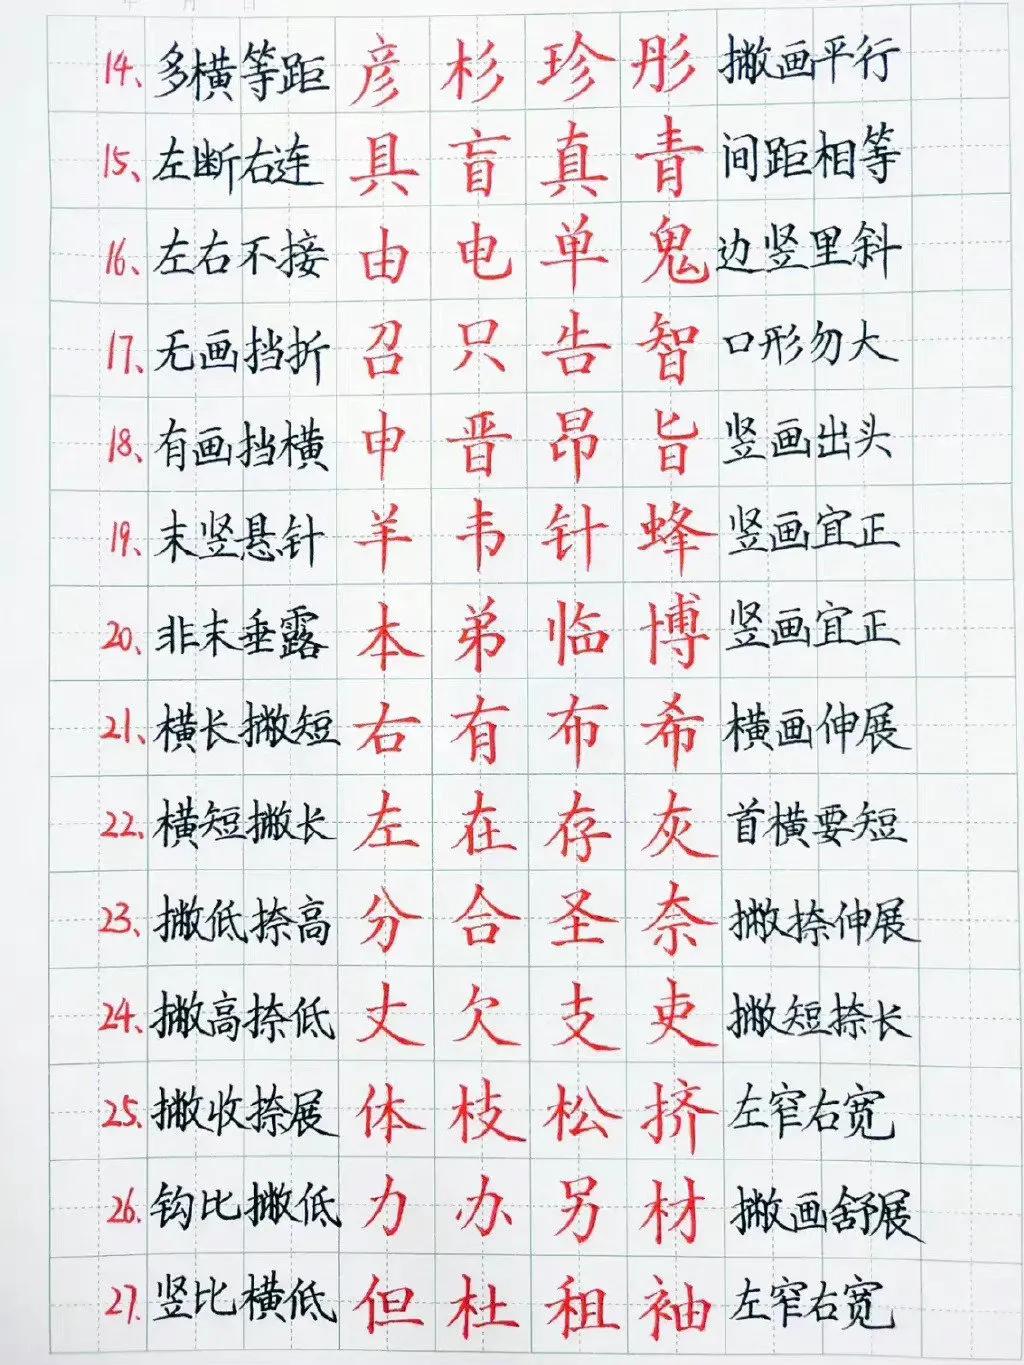 年 月 日
14、多横等距 彦 杉 珍 彤 撇画平行
15、左断右连 具 盲 真 青 间距相等
16、左右不接 由 电 单 鬼 边竖里斜
17、无画挡折 召 只 告 智 口形勿大
18、有画挡横 申 晋 昂 旨 竖画出头
19、末竖悬针 羊 韦 针 蜂 竖画宜正
20、非末垂露 本 弟 临 博 竖画宜正
21、横长撇短 右 有 布 希 横画伸展
22、横短撇长 左 在 存 灰 首横要短
23、撇低捺高 分 合 圣 奈 撇捺伸展
24、撇高捺低 丈 欠 支 吏 撇短捺长
25、撇收捺展 体 枝 松 挤 左窄右宽
26、钩比撇低 力 办 另 材 撇画舒展
27、竖比横低 但 杜 租 袖 左窄右宽